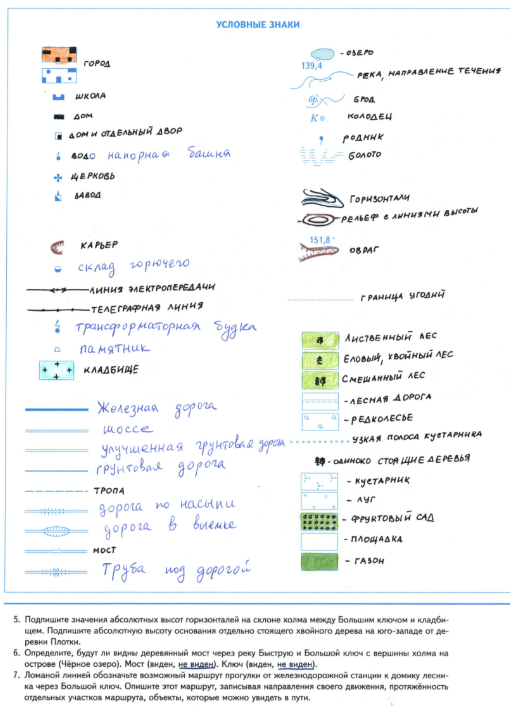 УСЛОВНЫЕ ЗНАКИ
ГОРОД
ШКОЛА
ДОМ
ДОМ И ОТДЕЛЬНЫЙ ДВОР
ВОДО напорная башня
ЦЕРКОВЬ
ЗАВОД
КАРЬЕР
склад горючего
ЛИНИЯ ЭЛЕКТРОПЕРЕДАЧИ
ТЕЛЕГРАФНАЯ ЛИНИЯ
трансформаторная будка
памятник
КЛАДБИЩЕ
Железная дорога
шоссе
улучшенная грунтовая дорога
грунтовая дорога
ТРОПА
дорога по насыпи
дорога в выемке
МОСТ
Труба под дорогой
- ОЗЕРО
139,4
РЕКА, НАПРАВЛЕНИЕ ТЕЧЕНИЯ
бр. БРОД
К КОЛОДЕЦ
РОДНИК
БОЛОТО
ГОРИЗОНТАЛИ
- РЕЛЬЕФ С ЛИНИЯМИ ВЫСОТЫ
151,8
ОВРАГ
ГРАНИЦА УГОДИЙ
ЛИСТВЕННЫЙ ЛЕС
ЕЛОВЫЙ, ХВОЙНЫЙ ЛЕС
СМЕШАННЫЙ ЛЕС
- ЛЕСНАЯ ДОРОГА
- РЕДКОЛЕСЬЕ
УЗКАЯ ПОЛОСА КУСТАРНИКА
- ОДИНОКО СТОЯЩИЕ ДЕРЕВЬЯ
- КУСТАРНИК
- ЛУГ
- ФРУКТОВЫЙ САД
- ПЛОЩАДКА
- ГАЗОН
5. Подпишите значения абсолютных высот горизонталей на склоне холма между Большим ключом и кладби-
щем. Подпишите абсолютную высоту основания отдельно стоящего хвойного дерева на юго-западе от де-
ревни Плотки.
6. Определите, будут ли видны деревянный мост через реку Быструю и Большой ключ с вершины холма на
острове (Чёрное озеро). Мост (виден, не виден). Ключ (виден, не виден).
7. Ломаной линией обозначьте возможный маршрут прогулки от железнодорожной станции к домику лесни-
ка через Большой ключ. Опишите этот маршрут, записывая направления своего движения, протяжённость
отдельных участков маршрута, объекты, которые можно увидеть в пути.